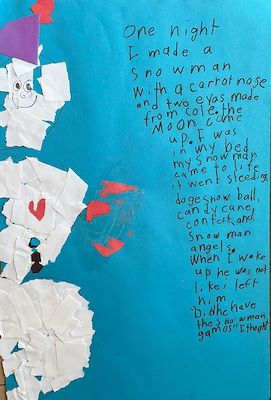 One night
I made a
snowman
with a carrot nose
and two eyas made
from cole. the
MOON came
up. I was
in my bed
my snow man
came to life
it went sleeding,
dogesnow ball,
candy cane,
contest, and
snow man
angels.
When I woke
up he was not
like i left
him
Did he have
the snowman
games" I thoght